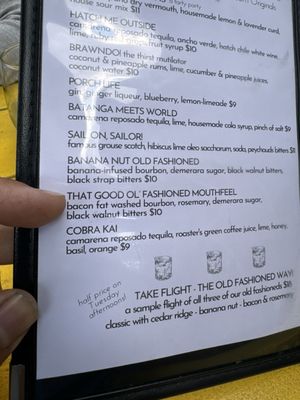 dry vermouth, housemade lemon & lavender curd,
house sour mix $11
HATCH ME OUTSIDE
reposado tequila, ancho verde, hatch chile white wine,
lime, grapefruit syrup $10
BRAWNDO! the thirst mutilator
coconut & pineapple rums, lime, cucumber & pineapple juices,
coconut water $10
PORCH LIFE
gin, ginger liqueur, blueberry, lemon-limeade $9
BATANGA MEETS WORLD
camarena reposado tequila, lime, housemade cola syrup, pinch of salt $9
SAIL ON, SAILOR!
famous grouse scotch, hibiscus lime oleo saccharum, soda, peychauds bitters
BANANA NUT OLD FASHIONED
banana-infused bourbon, demerara sugar, black walnut bitters,
black strap bitters $10
THAT GOOD OL' FASHIONED MOUTHFEEL
bacon fat washed bourbon, rosemary, demerara sugar,
black walnut bitters $10
COBRA KAI
camarena reposado tequila, roaster's green coffee juice, lime, honey,
basil, orange $9
half price on
Tuesday
afternoons!
TAKE FLIGHT - THE OLD FASHIONED WAY!
a sample flight of all three of our old fashioneds
classic with cedar ridge - banana nut - bacon & rosemary